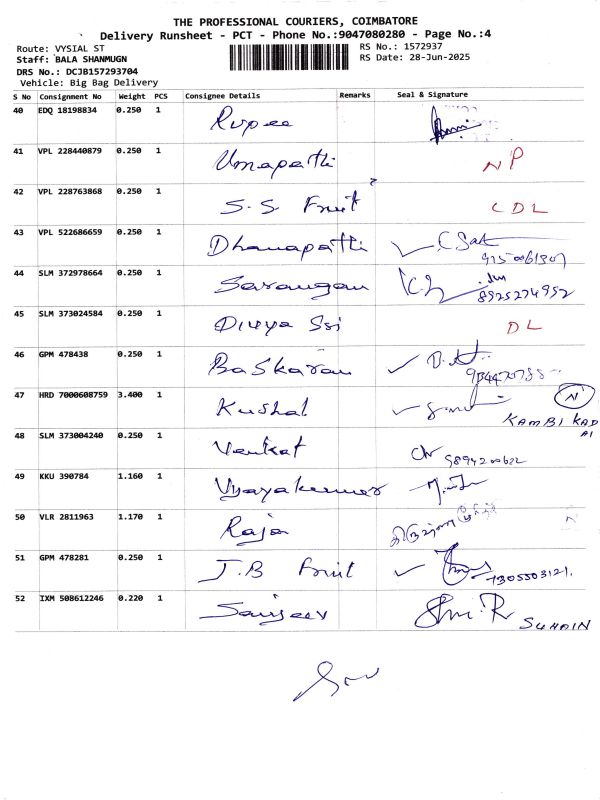 THE PROFESSIONAL COURIERS, COIMBATORE
Delivery Runsheet - PCT - Phone No.:9047080280 - Page No.:4
Route: VYSIAL ST
Staff: BALA SHANMUGN
DRS No.: DCJB157293704
Vehicle: Big Bag Delivery
RS No.: 1572937
RS Date: 28-Jun-2025
S No Consignment No Weight PCS Consignee Details Remarks Seal & Signature
40 EDQ 18198834 0.250 1 Rupee
41 VPL 228440879 0.250 1 Umapathi NP
42 VPL 228763868 0.250 1 S.S. Fruit CDL
43 VPL 522686659 0.250 1 Dhanapathi
44 SLM 372978664 0.250 1 Sarangan 8925274952
45 SLM 373024584 0.250 1 Divya Sri DL
46 GPM 478438 0.250 1 Baskaran
47 HRD 7000608759 3.400 1 Kushal N
KAMBI KAD
AI
48 SLM 373004240 0.250 1 Venkat
49 KKU 390784 1.160 1 Vijayakumar
50 VLR 2811963 1.170 1 Raja
51 GPM 478281 0.250 1 J.B Fruit 7305503121.
52 IXM 508612246 0.220 1 Sanjeev
SUHAIN